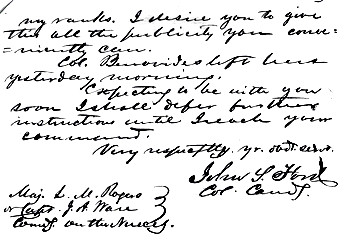 my ranks. I desire you to give
this all the publicity you conve-
=niently can.
Col. Benavides left here
yesterday morning.
Expecting to be with you
soon I shall defer further
instructions until I reach your
command.
Very respectfly. yr. obdt. servt.
John S. Ford
Col. Comdg.
Maj. L. M. Rogers
or Capt. J. A. Ware
Comdg. on the Nueces.